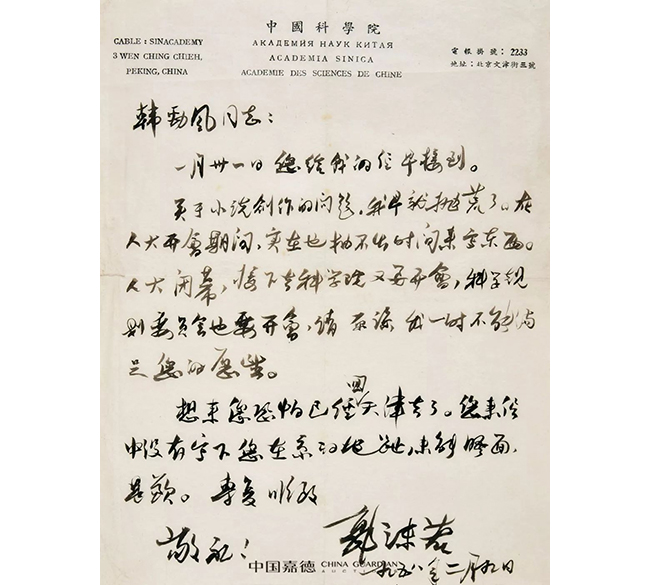 中國科學院
АКАДЕМИЯ НАУК КИТАЯ
ACADEMIA SINICA
ACADEMIE DES SCIENCES DE CHINE
CABLE : SINACADEMY
3 WEN CHING CHIEH,
PEKING, CHINA
電報掛號：2233
地址：北京文津街三號
韩劲风同志：
一月卅一日您给我的信早接到。
关于小说创作的问题，我早就抛荒了。在
人大开會期间，实在也抽不出时间来写东西。
人大闭幕，接下去科学院又要开會，科学规
划委员会也要开會，请原谅我一时不能满
足您的愿望。
想来您恐怕已经回天津去了。您来信
中没有写下您在京的地址，未能晤面，
甚歉。专复 顺致
敬礼！
郭沫若
一九五八年二月九日
中国嘉德 CHINA GUARDIAN
AUCTIONS